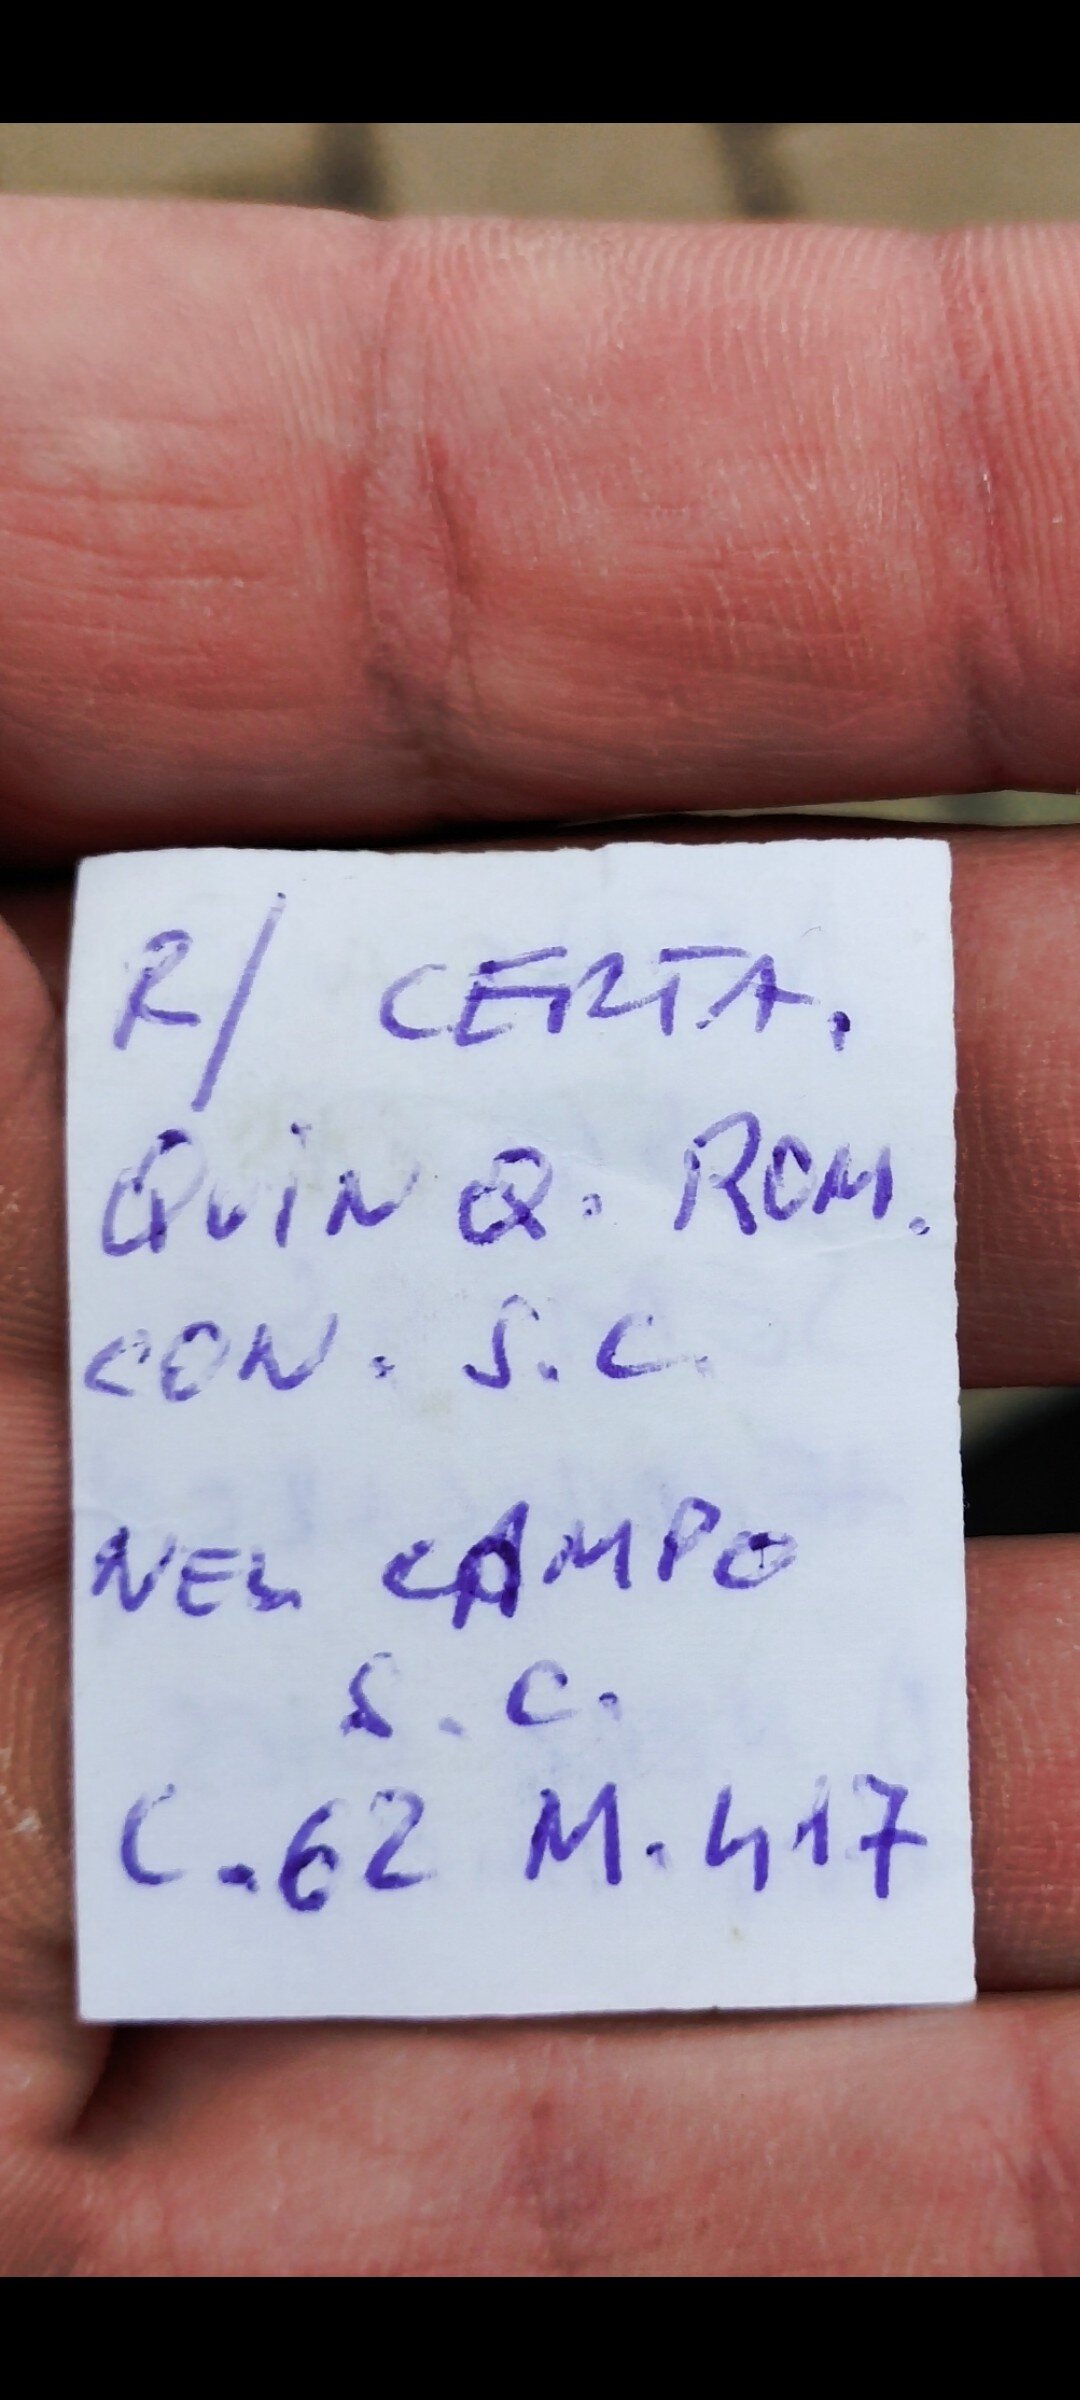 R/ CERTA.
QUINQ. ROM.
CON. S.C.
NEL CAMPO
S.C.
C.62 M.417